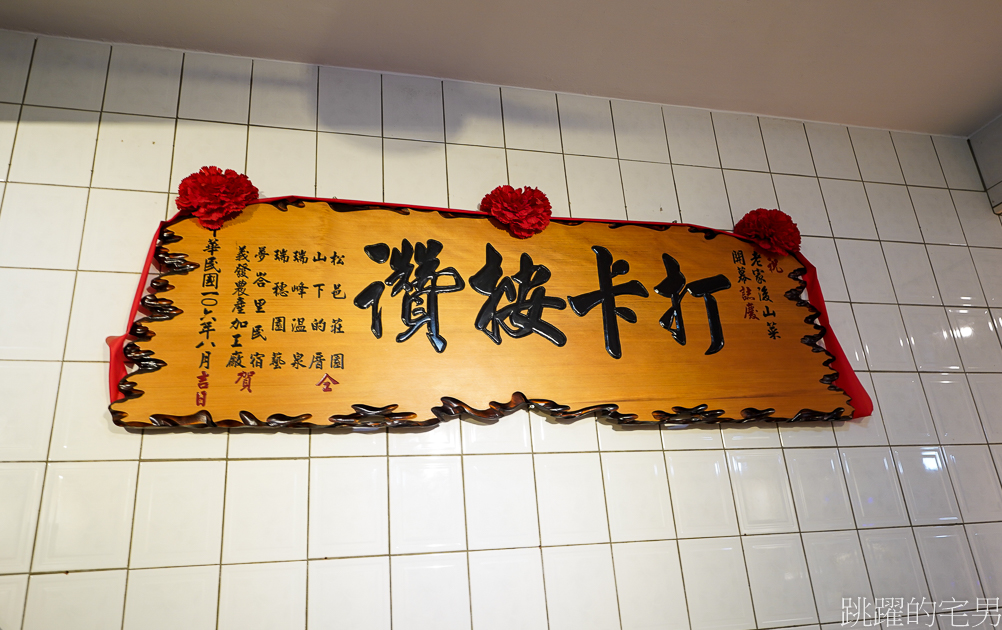 祝
老家後山菜
開幕誌慶
打卡按讚
松邑莊園
山下的厝
瑞峰溫泉
瑞穗園藝
夢峇里民宿
義發農產加工廠
仝
賀
中華民國一〇六年八月吉日
跳躍的宅男